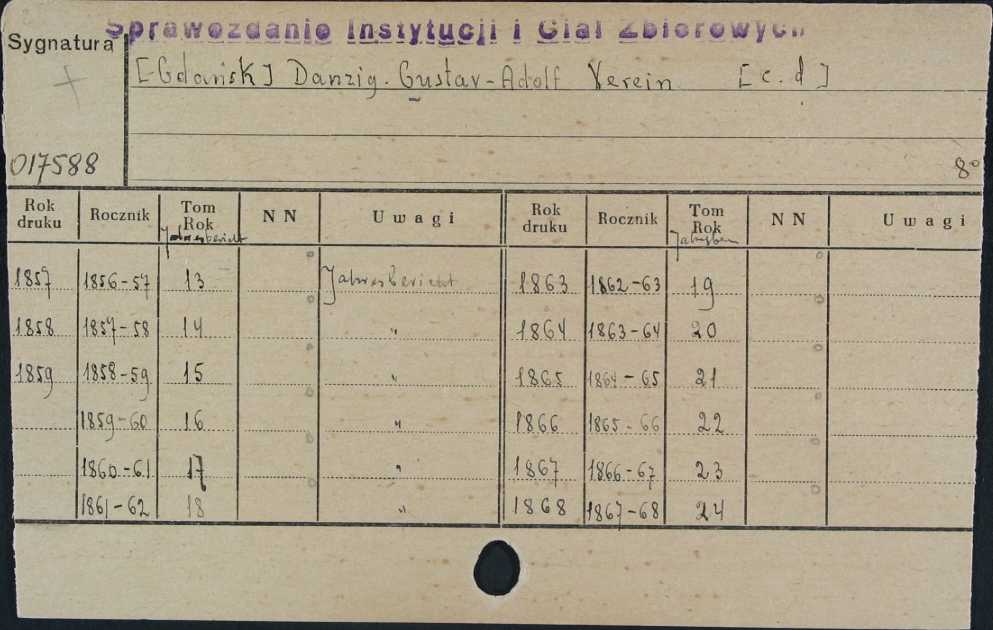 Sprawozdanie Instytucji i Ciał Zbiorowych
Sygnatura
[Gdańsk] Danzig. Gustav-Adolf Verein [c.d]
017588 8°
Rok druku Rocznik Tom Rok NN Uwagi Rok druku Rocznik Tom Rok NN Uwagi
Jahresbericht Jahresber
1857 1856-57 13 Jahresbericht 1863 1862-63 19
1858 1857-58 14 " 1864 1863-64 20
1859 1858-59 15 " 1865 1864-65 21
1859-60 16 " 1866 1865-66 22
1860-61 17 " 1867 1866-67 23
1861-62 18 " 1868 1867-68 24